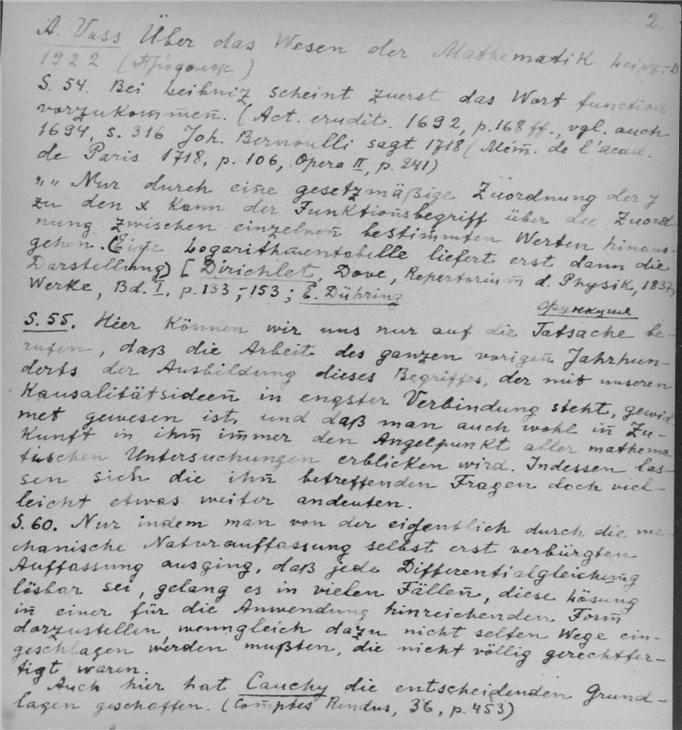 2.
A. Voss Über das Wesen der Mathematik Leipz-B
1922 (
S. 54. Bei Leibniz scheint zuerst das Wort function
vorzukommen. (Act. erudit. 1692, p. 168 ff., vgl. auch
1694, S. 316 Joh. Bernoulli sagt 1718 (Mém. de l'acad.
de Paris 1718, p. 106, Opera II, p. 241)
„„ Nur durch eine gesetzmäßige Zuordnung der y
zu den x kann der Funktionsbegriff über die Zuord
nung zwischen einzelnen bestimmten Werten hinaus-
gehen. (Eine Logarithmentabelle liefert erst dann die
Darstellung) [Dirichlet, Dove, Repertorium d. Physik, 1837,
Werke, Bd. I, p. 133,-153; E. Dühring
функция
S. 55. Hier können wir uns nur auf die Tatsache be-
rufen, daß die Arbeit des ganzen vorigen Jahrhun-
derts der Ausbildung dieses Begriffes, der mit unseren
Kausalitätsideen in engster Verbindung steht, gewid
met gewesen ist, und daß man auch wohl in Zu-
kunft in ihm immer den Angelpunkt aller mathema
tischen Untersuchungen erblicken wird. Indessen las-
sen sich die ihn betreffenden Fragen doch viel-
leicht etwas weiter andeuten.
S. 60. Nur indem man von der eigentlich durch die me-
chanische Naturauffassung selbst erst verbürgten
Auffassung ausging, daß jede Differentialgleichung
lösbar sei, gelang es in vielen Fällen, diese Lösung
in einer für die Anwendung hinreichenden Form
darzustellen, wenngleich dazu nicht selten Wege ein-
geschlagen werden mußten, die nicht völlig gerechtfer-
tigt waren.
Auch hier hat Cauchy die entscheidenden Grund-
lagen geschaffen. (Comptes Rendus, 36, p. 453)